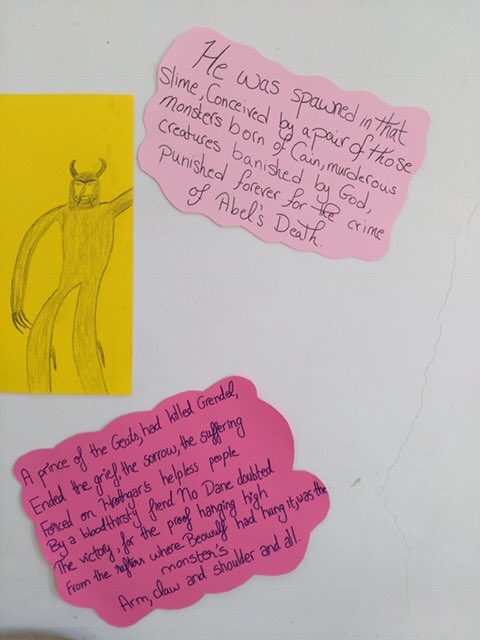 He was spawned in that
slime, Conceived by a pair of those
monsters born of Cain, murderous
creatures banished by God,
punished forever for the crime
of Abel's Death.
A prince of the Geats, had killed Grendel,
Ended the grief, the sorrow, the suffering
Forced on Hrothgar's helpless people
By a bloodthirsty fiend. No Dane doubted
The victory, for the proof hanging high
From the rafters where Beowulf had hung it, was the
monster's
Arm, claw and shoulder and all.